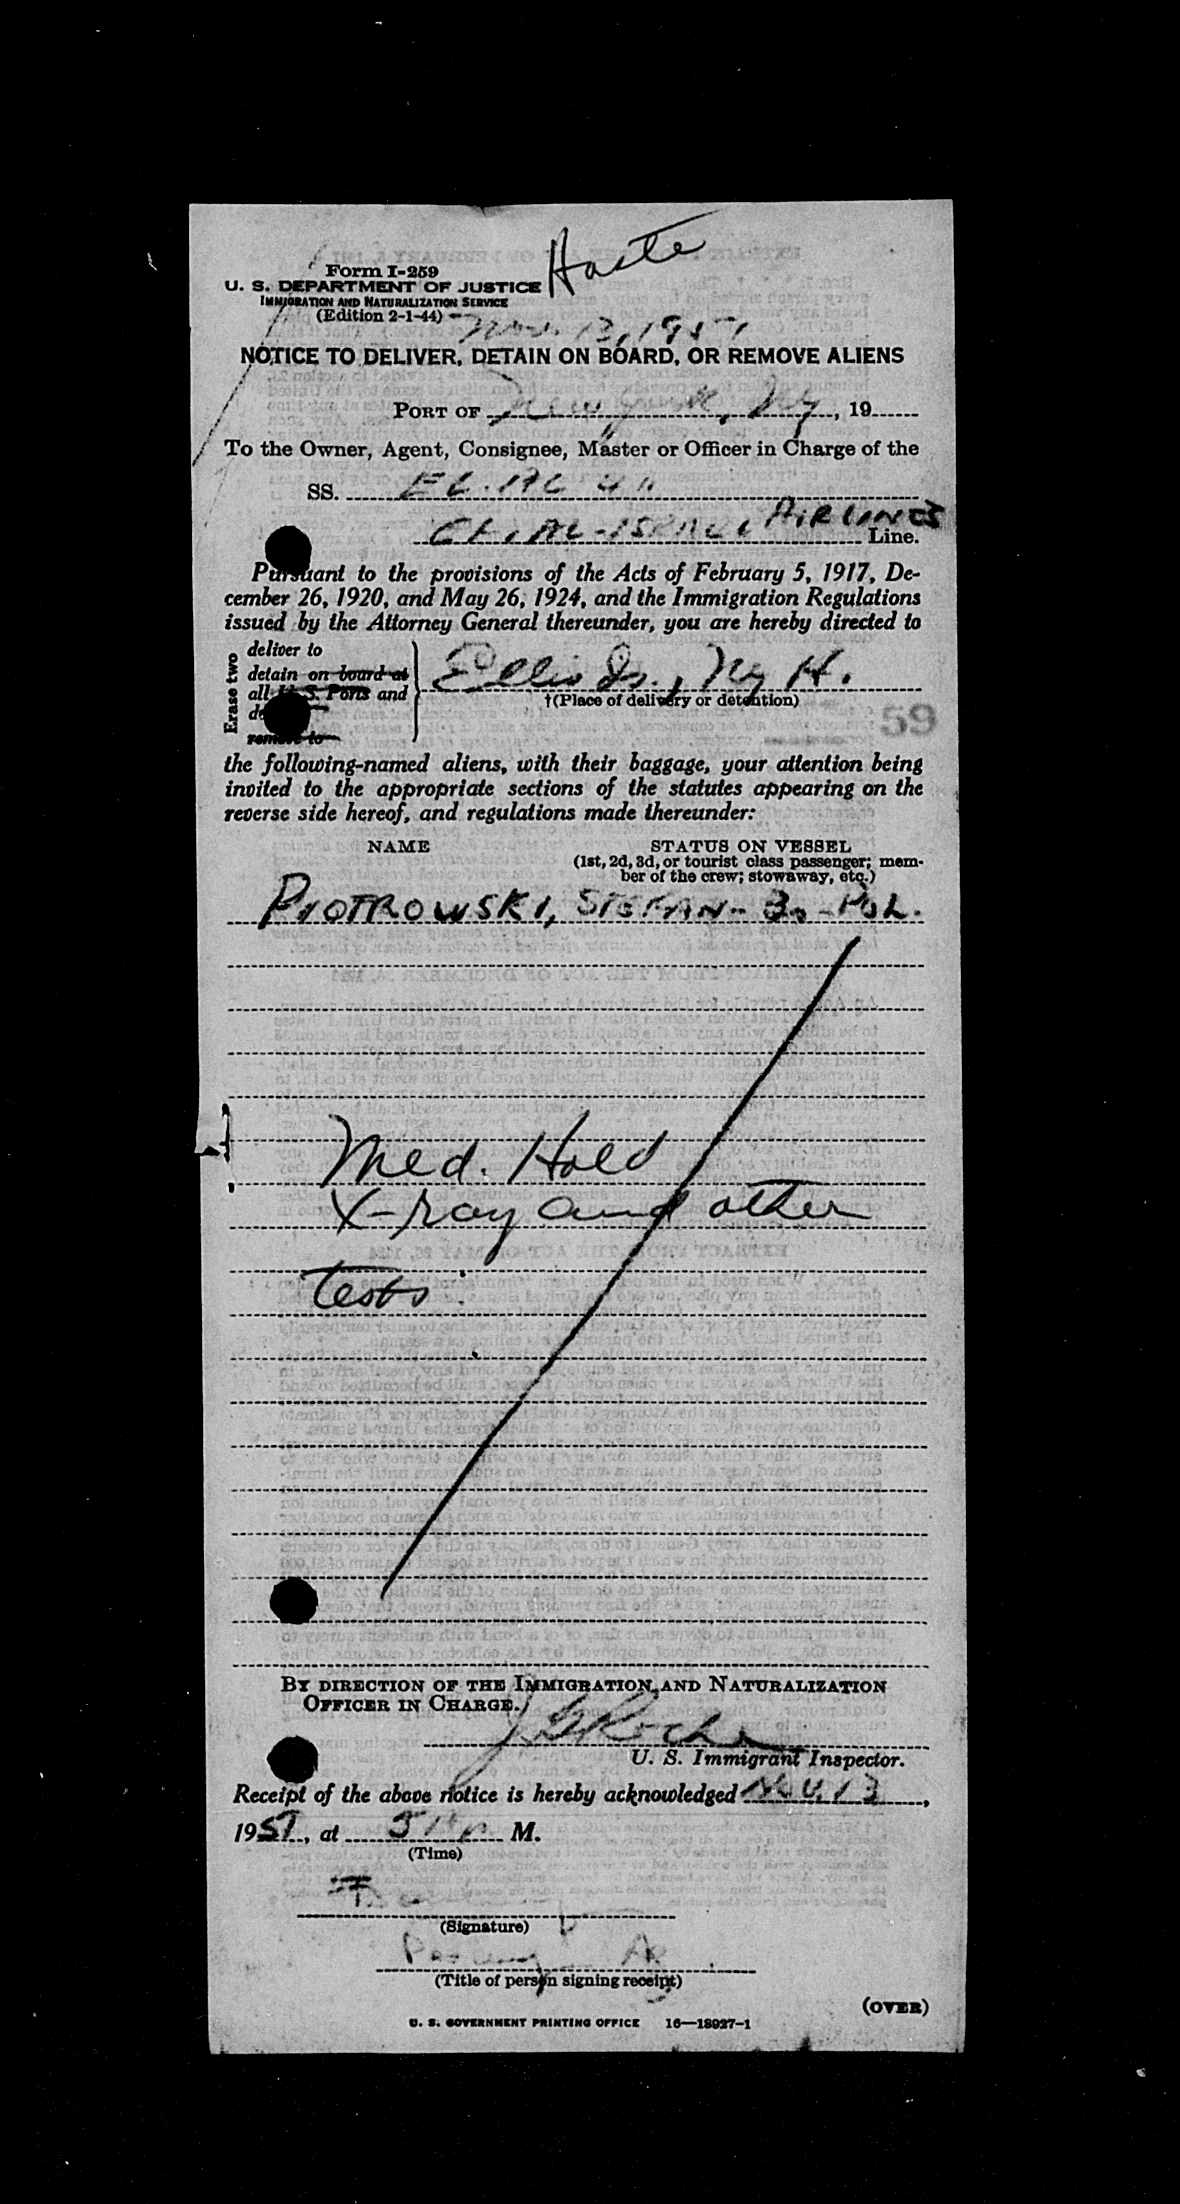 Haste
Form I-259
U. S. DEPARTMENT OF JUSTICE
IMMIGRATION AND NATURALIZATION SERVICE
(Edition 2-1-44)
Nov. 13, 1951
NOTICE TO DELIVER, DETAIN ON BOARD, OR REMOVE ALIENS
PORT OF New York, Ny, 19
To the Owner, Agent, Consignee, Master or Officer in Charge of the
SS. EL. AL
EL. AL-ISRAEL AIRLINES Line.
Pursuant to the provisions of the Acts of February 5, 1917, De-
cember 26, 1920, and May 26, 1924, and the Immigration Regulations
issued by the Attorney General thereunder, you are hereby directed to
Erase two
deliver to
detain on board at
all U. S. Ports and
remove to
Ellis Is., Ny H.
†(Place of delivery or detention)
59
the following-named aliens, with their baggage, your attention being
invited to the appropriate sections of the statutes appearing on the
reverse side hereof, and regulations made thereunder:
NAME
STATUS ON VESSEL
(1st, 2d, 3d, or tourist class passenger; mem-
ber of the crew; stowaway, etc.)
PIOTROWSKI, STEFAN - 30 - POL.
Med. Hold
X-ray and other
tests
BY DIRECTION OF THE IMMIGRATION AND NATURALIZATION
OFFICER IN CHARGE.
J G Roche
U. S. Immigrant Inspector.
Receipt of the above notice is hereby acknowledged Nov. 13,
1951, at M.
(Time)
(Signature)
(Title of person signing receipt)
(OVER)
U. S. GOVERNMENT PRINTING OFFICE 16—18927-1